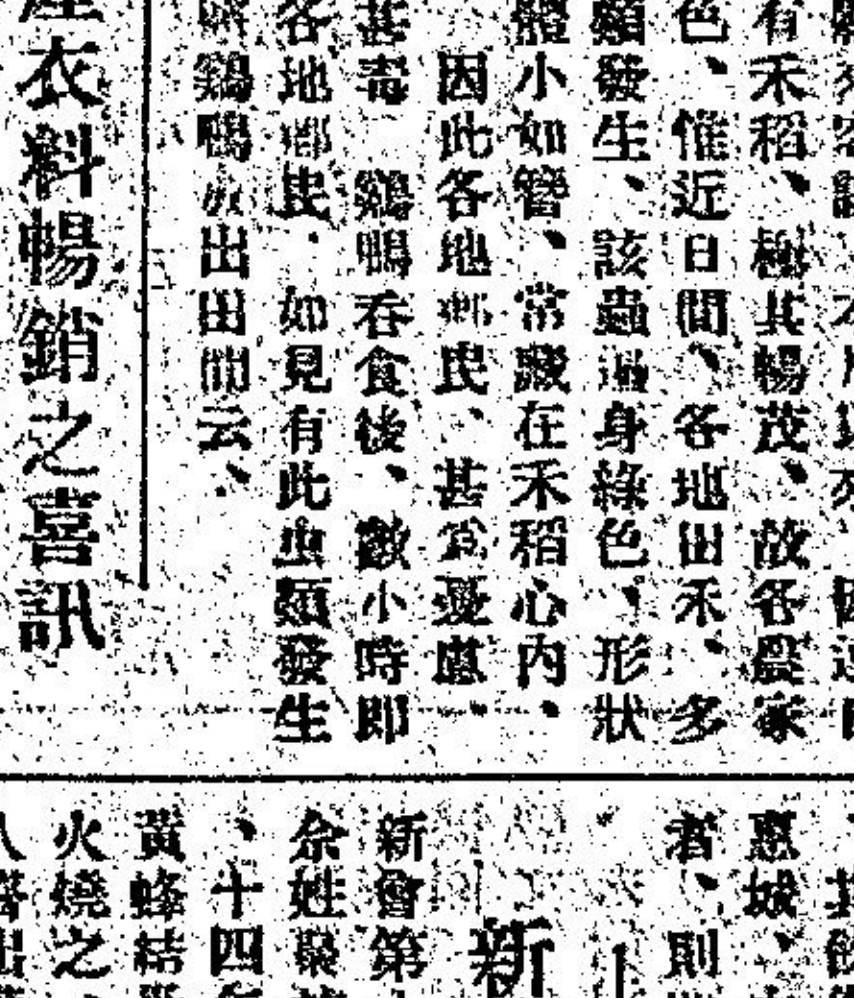 有禾稻、極其暢茂、故各農家
色、惟近日間、各地田禾、多
類發生、該蟲遍身綠色、形狀
體小如管、常藏在禾稻心內、
因此各地鄉民、甚為憂慮、
甚毒 鷄鴨吞食後、數小時即
各地鄉民、如見有此虫類發生
鷄鴨放出田間云、
衣料暢銷之喜訊
惠城、
者、則
新
新會第
余姓
、十四
黃蜂結
火燒之